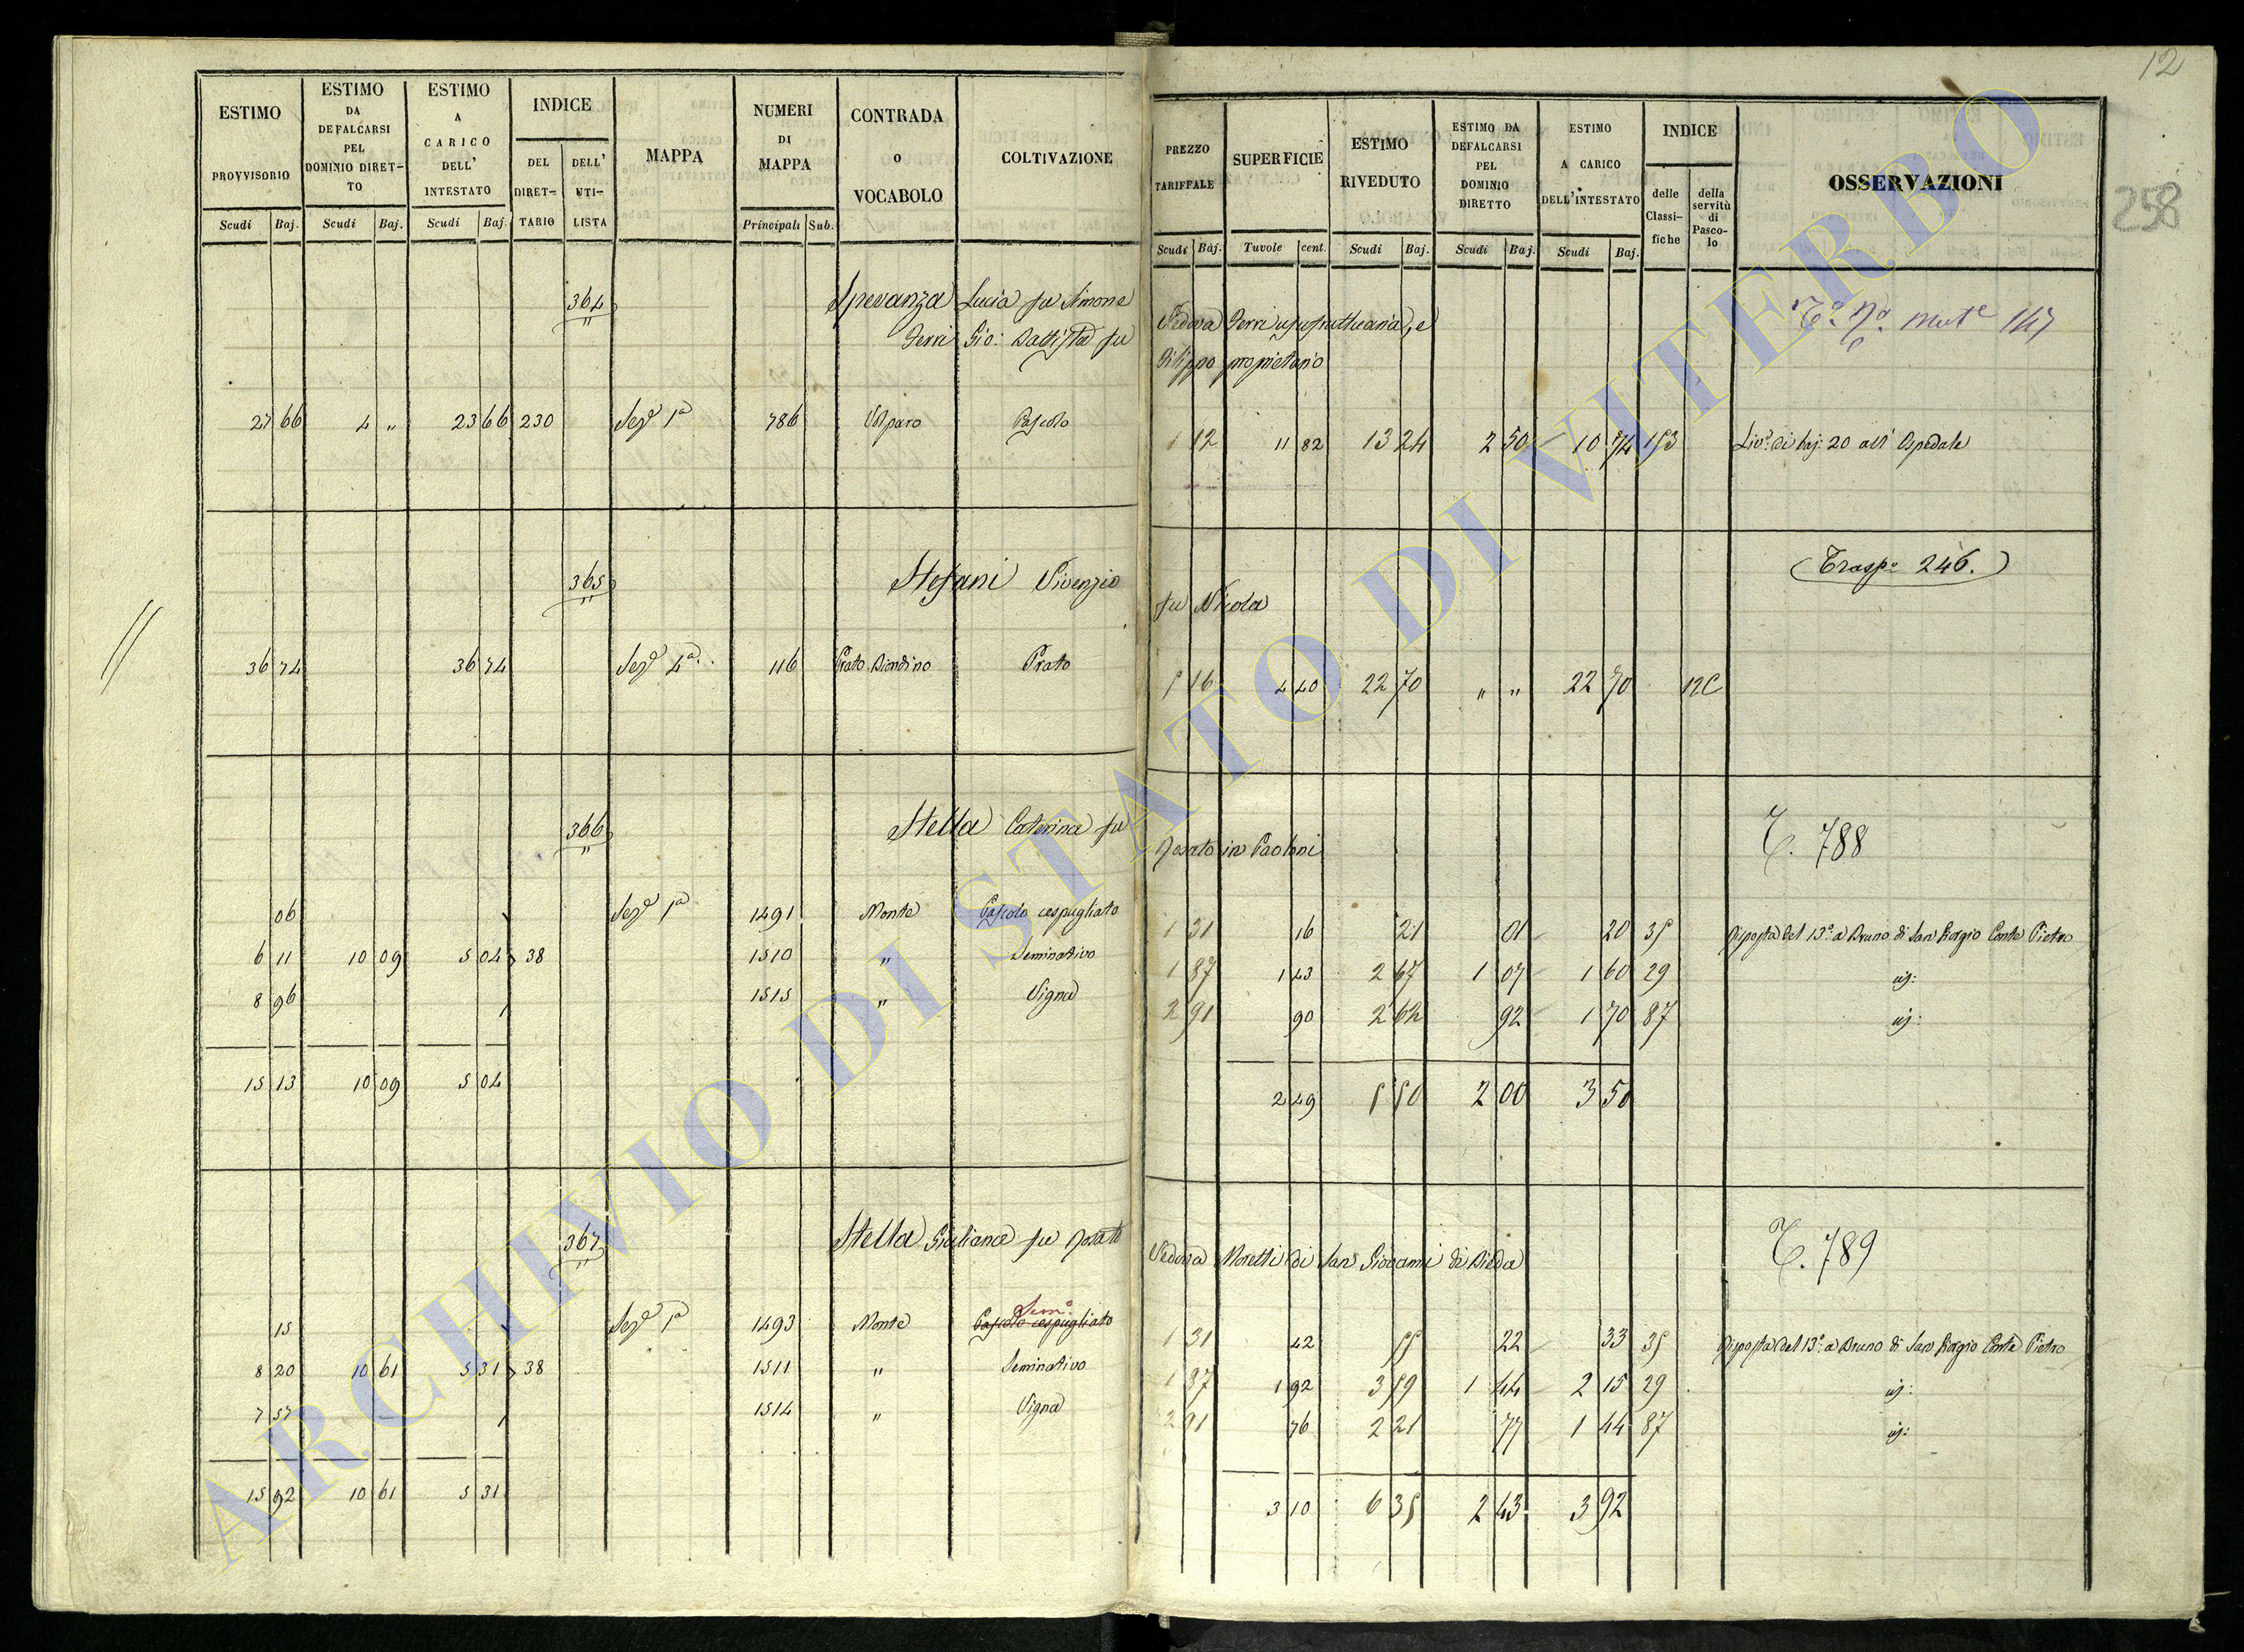 12
258
ESTIMO PROVVISORIO
ESTIMO DA DEFALCARSI PEL DOMINIO DIRETTO
ESTIMO A CARICO DELL' INTESTATO
INDICE
DEL DIRETTARIO
DELL' UTILISTA
MAPPA
NUMERI DI MAPPA
CONTRADA o VOCABOLO
COLTIVAZIONE
PREZZO TARIFFALE
SUPERFICIE
ESTIMO RIVEDUTO
ESTIMO DA DEFALCARSI PEL DOMINIO DIRETTO
ESTIMO A CARICO DELL'INTESTATO
INDICE
delle Classifiche
della servitù di Pascolo
OSSERVAZIONI
Scudi Baj. Scudi Baj. Scudi Baj. Principali Sub.
Scudi Baj. Tavole cent. Scudi Baj. Scudi Baj. Scudi Baj.
364 Speranza Lucia fu Simone Vedova Ferri usufruttuaria, e
Ferri Gio: Battista fu Filippo proprietario
27 66 4 " 23 66 230 Sezᵉ 1ª 786 Pascolo 1 12 11 82 13 24 2 50 10 74 153 Livº di baj: 20 all' Ospedale
365 Stefani Vivenzio fu Nicola (Traspº 246.)
36 74 36 74 Sezᵉ 4ª 116 Prato Biondino Prato 5 16 4 40 22 70 " " 22 70 12C
366 Stella Caterina fu Donato in Paoloni T. 788
06 Sezᵉ 1ª 1491 Monte Pascolo cespugliato 1 31 16 21 01 20 35 Risposta del 13º a Bruno di San Giorgio Conte Pietro
6 11 10 09 5 04 38 1510 " Seminativo 1 87 1 43 2 67 1 07 1 60 29
8 96 1515 " Vigna 2 91 90 2 62 92 1 70 87
15 13 10 09 5 04 2 49 5 50 2 00 3 50
367 Stella Giuliana fu Donato Vedova Moretti di San Giovanni di Bieda T. 789
Semº
15 Sezᵉ 1ª 1493 Monte Pascolo cespugliato 1 31 42 55 22 33 35 Risposta del 13º a Bruno di San Giorgio Conte Pietro
8 20 10 61 5 31 38 1511 " Seminativo 1 87 1 92 3 59 1 44 2 15 29
7 57 1514 " Vigna 2 91 76 2 21 77 1 44 87
15 92 10 61 5 31 3 10 6 35 2 43 3 92
ARCHIVIO DI STATO DI VITERBO